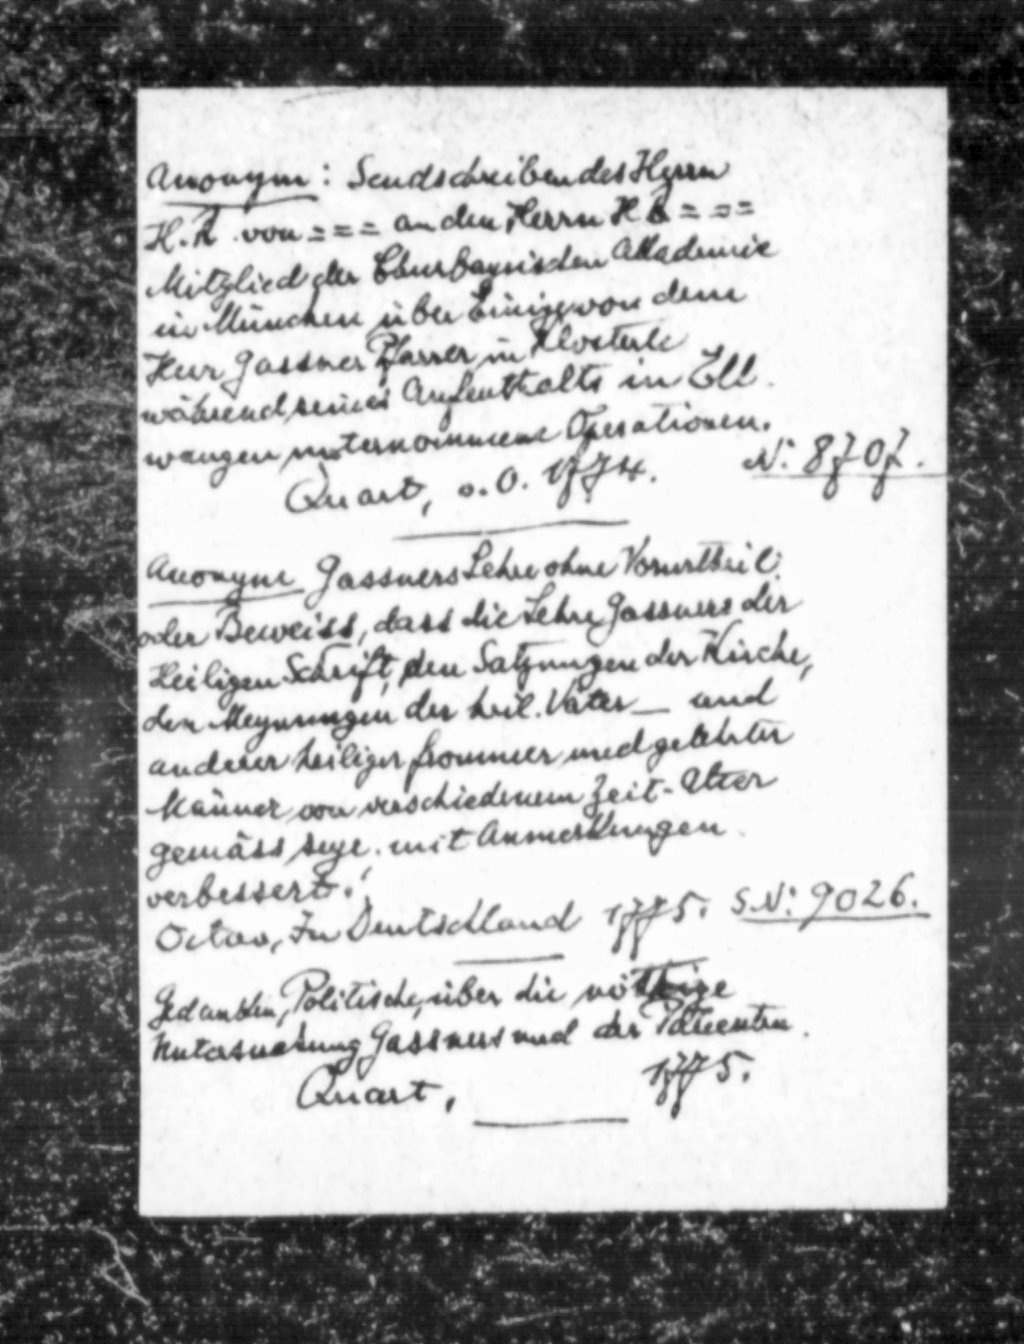 Anonym: Sendschreiben des Herrn
H. R. von = = = an den Herrn H B = = =
Mitglied der Churbayrischen Akademie
in München über Einige von dem
Herr Gassner Pfarrer in Klösterle
während seines Aufenthalts in Ell-
wangen unternommene Operationen.
Quart, o. O. 1774. N: 8707.
Anonym Gassners Lehre ohne Vorurtheil
oder Beweiss, dass die Lehre Gassners der
Heiligen Schrift, den Satzungen der Kirche,
den Meynungen der heil. Väter — und
anderer heiliger frommer und gelehrter
Männer von verschiedenem Zeit-Alter
gemäss seye. mit Anmerkungen
verbessert.
Octav, In Deutschland 1775. S. N: 9026.
Gedanken, Politische, über die nöthige
Untersuchung Gassners und der Patienten.
Quart, 1775.